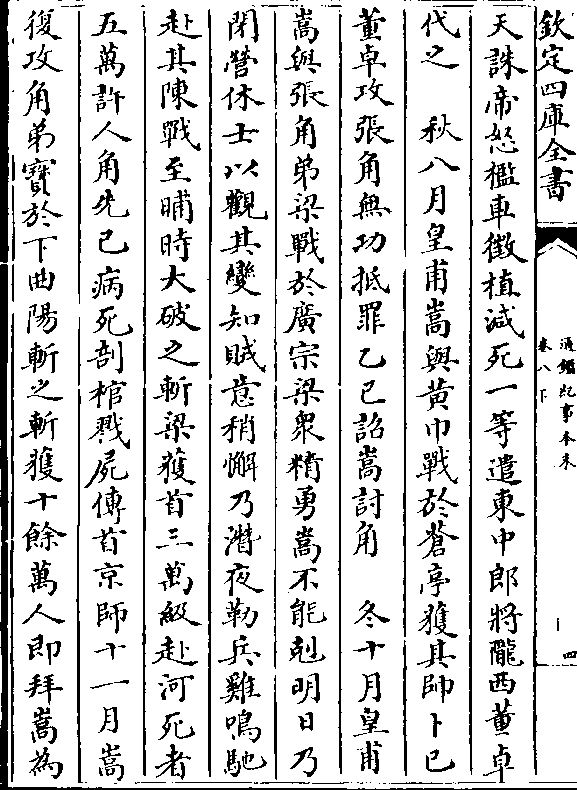 欽定四庫全書
通鑑紀事本末
卷八下
四
天誅帝怒檻車徵植減死一等遣東中郎將隴西董卓
代之　秋八月皇甫嵩與黃巾戰於蒼亭獲其帥卜已
董卓攻張角無功抵罪乙巳詔嵩討角　冬十月皇甫
嵩與張角弟梁戰於廣宗梁衆精勇嵩不能剋明日乃
閉營休士以觀其變知賊意稍懈乃潛夜勒兵雞鳴馳
赴其陳戰至晡時大破之斬梁獲首三萬級赴河死者
五萬許人角先已病死剖棺戮屍傳首京師十一月嵩
復攻角弟寶於下曲陽斬之斬獲十餘萬人即拜嵩為